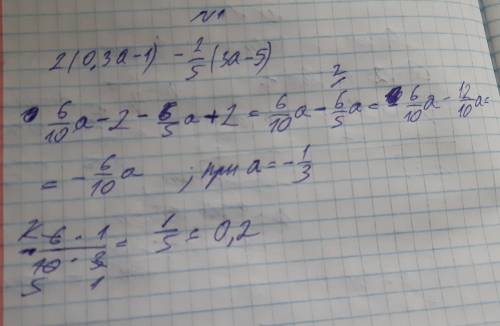 №1
2(0,3a-1) - 2/5(3a-5)
6/10a - 2 - 6/5a + 2 = 6/10a - 6/5a = 6/10a - 12/10a =
= - 6/10a ; при a = - 1/3
6 · 1 / 10 · 3 = 1/5 = 0,2
5 1